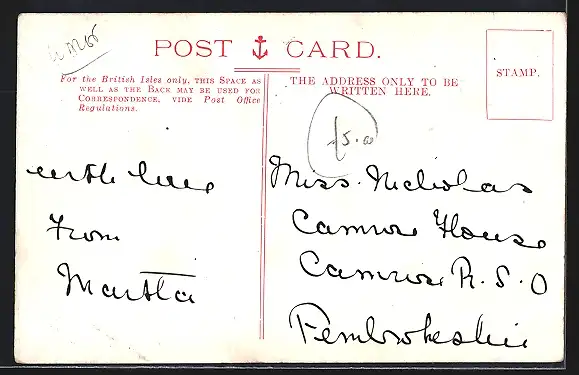 POST CARD.
For the British Isles only, THIS SPACE AS
WELL AS THE BACK MAY BE USED FOR
CORRESPONDENCE, VIDE Post Office
Regulations.
THE ADDRESS ONLY TO BE
WRITTEN HERE.
STAMP.
£5.00
with love
From
Martha
Miss. Nicholas
Camrose House
Camrose R.S.O
Pembrokeshire